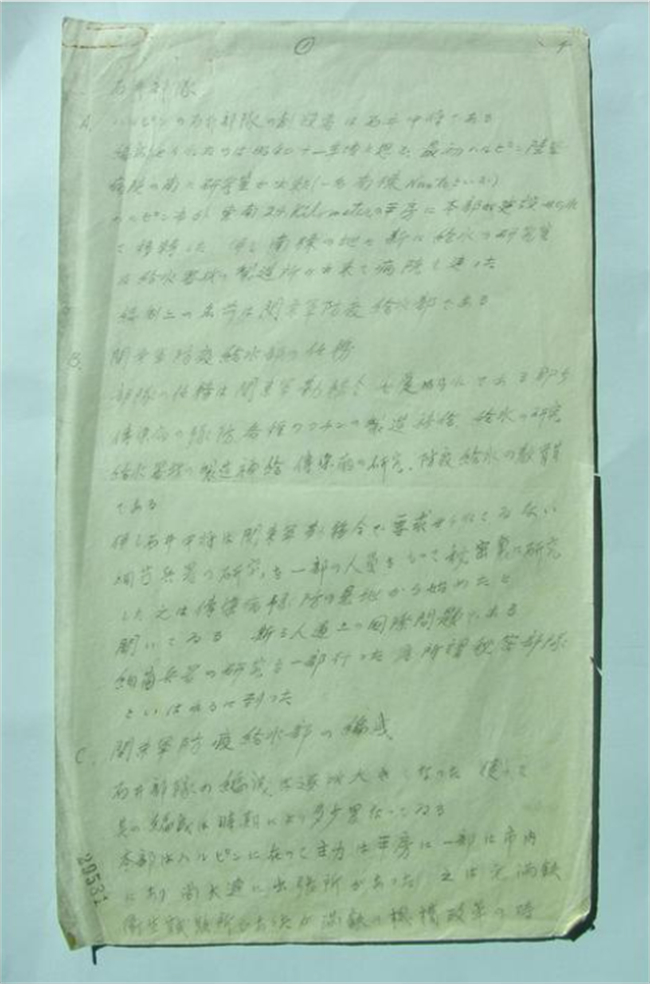 ①
石井部隊
A. ハルピンの石井部隊の創設者は石井中将である
編成せられたのは昭和十一年頃と想う 最初ハルピン陸軍
病院の南に研究室が出来(一名南棟
ハルピン市から東南24 Kilometerの平房に本部が建設せられ
て移転した 但し南棟の地に新に給水の研究室
給水器材の製造所が出来て病院
編制上の名前は関東軍防疫給水部である
B. 関東軍防疫給水部の任務
部隊の任務は関東軍勤務令に明示してある即ち
伝染病の予防各種ワクチンの製造補給、給水の研究
給水器材の製造補給 伝染病の研究、防疫給水の教育
である
但し石井中将は関東軍勤務令で要求せられてゐない
細菌兵器の研究を一部の人員をして秘密裏に研究
した 之は伝染病予防の見地から始めたと
聞いてゐる 斯る人道上の国際問題である
細菌兵器の研究を一部行った為所謂秘密部隊
といはれるに到った
C. 関東軍防疫給水部の編成
石井部隊の編成は逐次大きくなった 従って
其の編成は時期により多少異なってゐる
本部はハルピンに在って主力は平房に一部は市内
にあり 尚大連に出張所があった 之は元満鉄
衛生試験所
20531